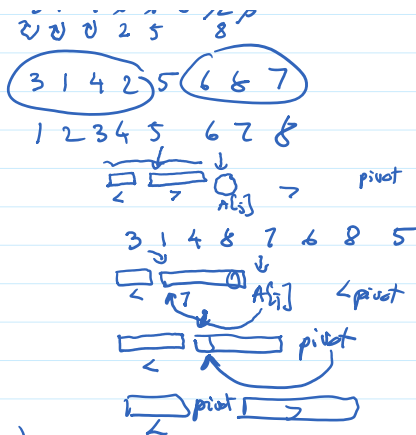 2 5 8
3 1 4 2 5 6 8 7
1 2 3 4 5 6 7 8
< > A[j] > pivot
3 1 4 8 7 6 8 5
< 7 A[j] < pivot
< pivot
< pivot >